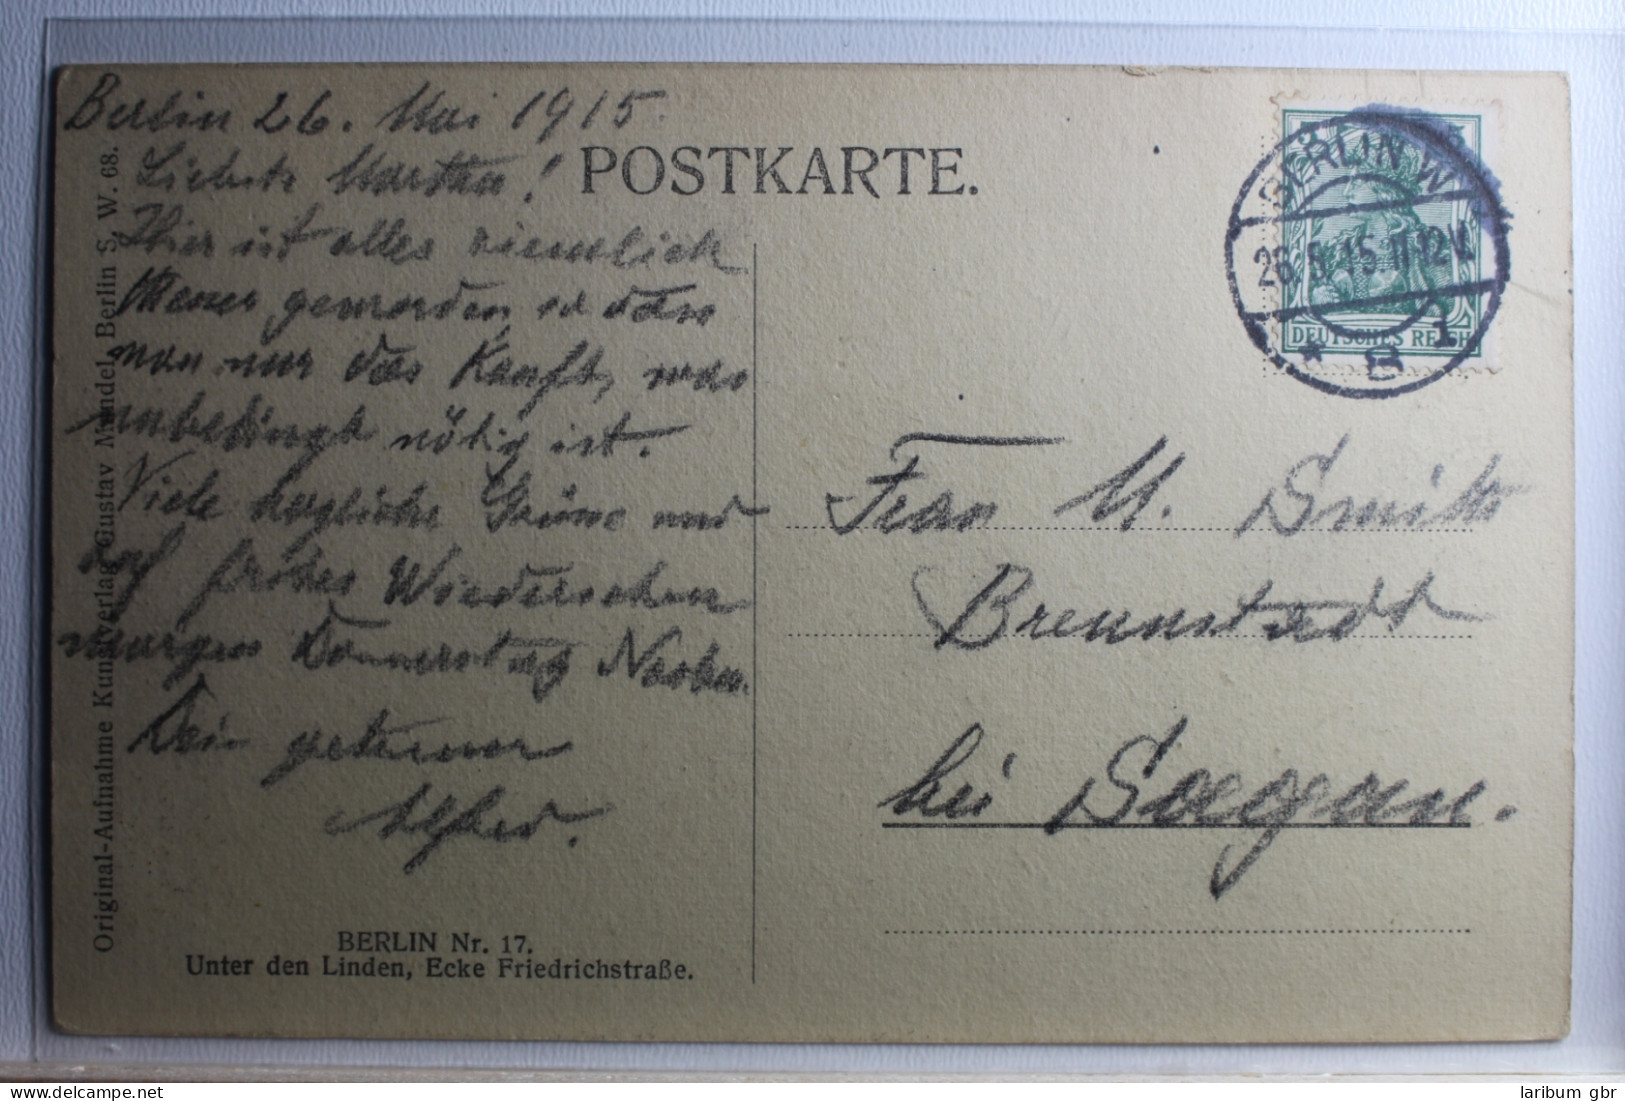 Berlin 26. Mai 1915.
Liebste Martha!
Hier ist alles ziemlich
theuer geworden so dass
man nur das Kauft, was
unbedingt nötig ist.
Viele herzliche Grüsse und
auf frohes Wiedersehen
morgen Donnerstag Nachm.
Dein getreuer
Alfred.
Original-Aufnahme Kunstverlag Gustav Mandel, Berlin S. W. 68.
BERLIN Nr. 17.
Unter den Linden, Ecke Friedrichstraße.
POSTKARTE.
BERLIN W
26.5.15.11-12V.
* 8 1
DEUTSCHES REICH
Frau M.
bei
laribum gbr